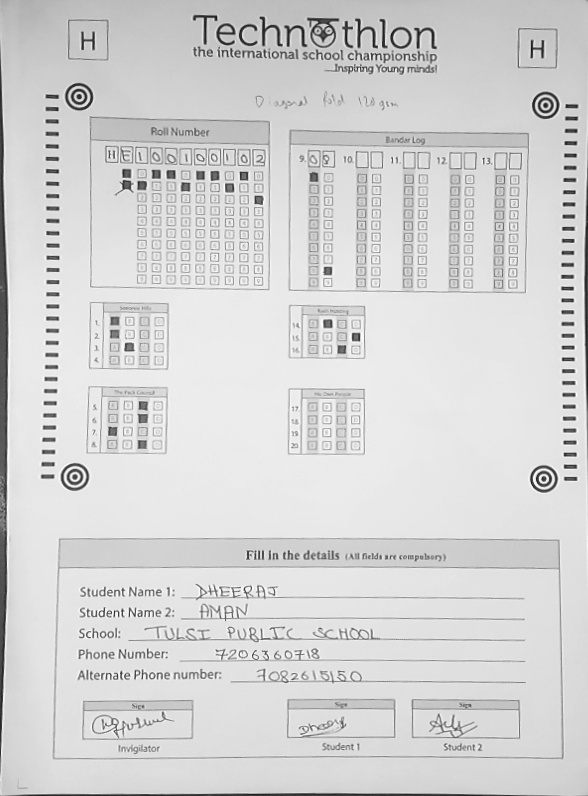 H
H
Technothlon
the international school championship
....Inspiring Young minds!
Diagonal fold 120 gsm
Roll Number
H E 1 0 0 1 0 0 1 0 2
Bandar Log
9. 0 8 10. 11. 12. 13.
1.
2.
3.
4.
14.
15.
16.
The Pack Council
5.
6.
7.
8.
17.
18.
19.
20.
Fill in the details (All fields are compulsory)
Student Name 1: DHEERAJ
Student Name 2: AMAN
School: TULSI PUBLIC SCHOOL
Phone Number: 7206360718
Alternate Phone number: 7082615150
Sign
Sign
Sign
Invigilator
Student 1
Student 2